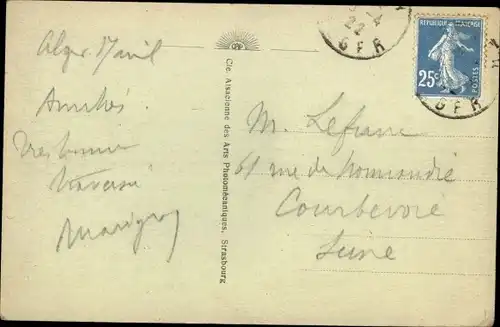 Alger 17 avril
Amitiés
Très bonne
traversée
Cie. Alsacienne des Arts Photomécaniques, Strasbourg
REPUBLIQUE FRANÇAISE
25c
POSTES
GFR
GFR
M. Lefranc
61 rue de Normandie
Courbevoie
Seine